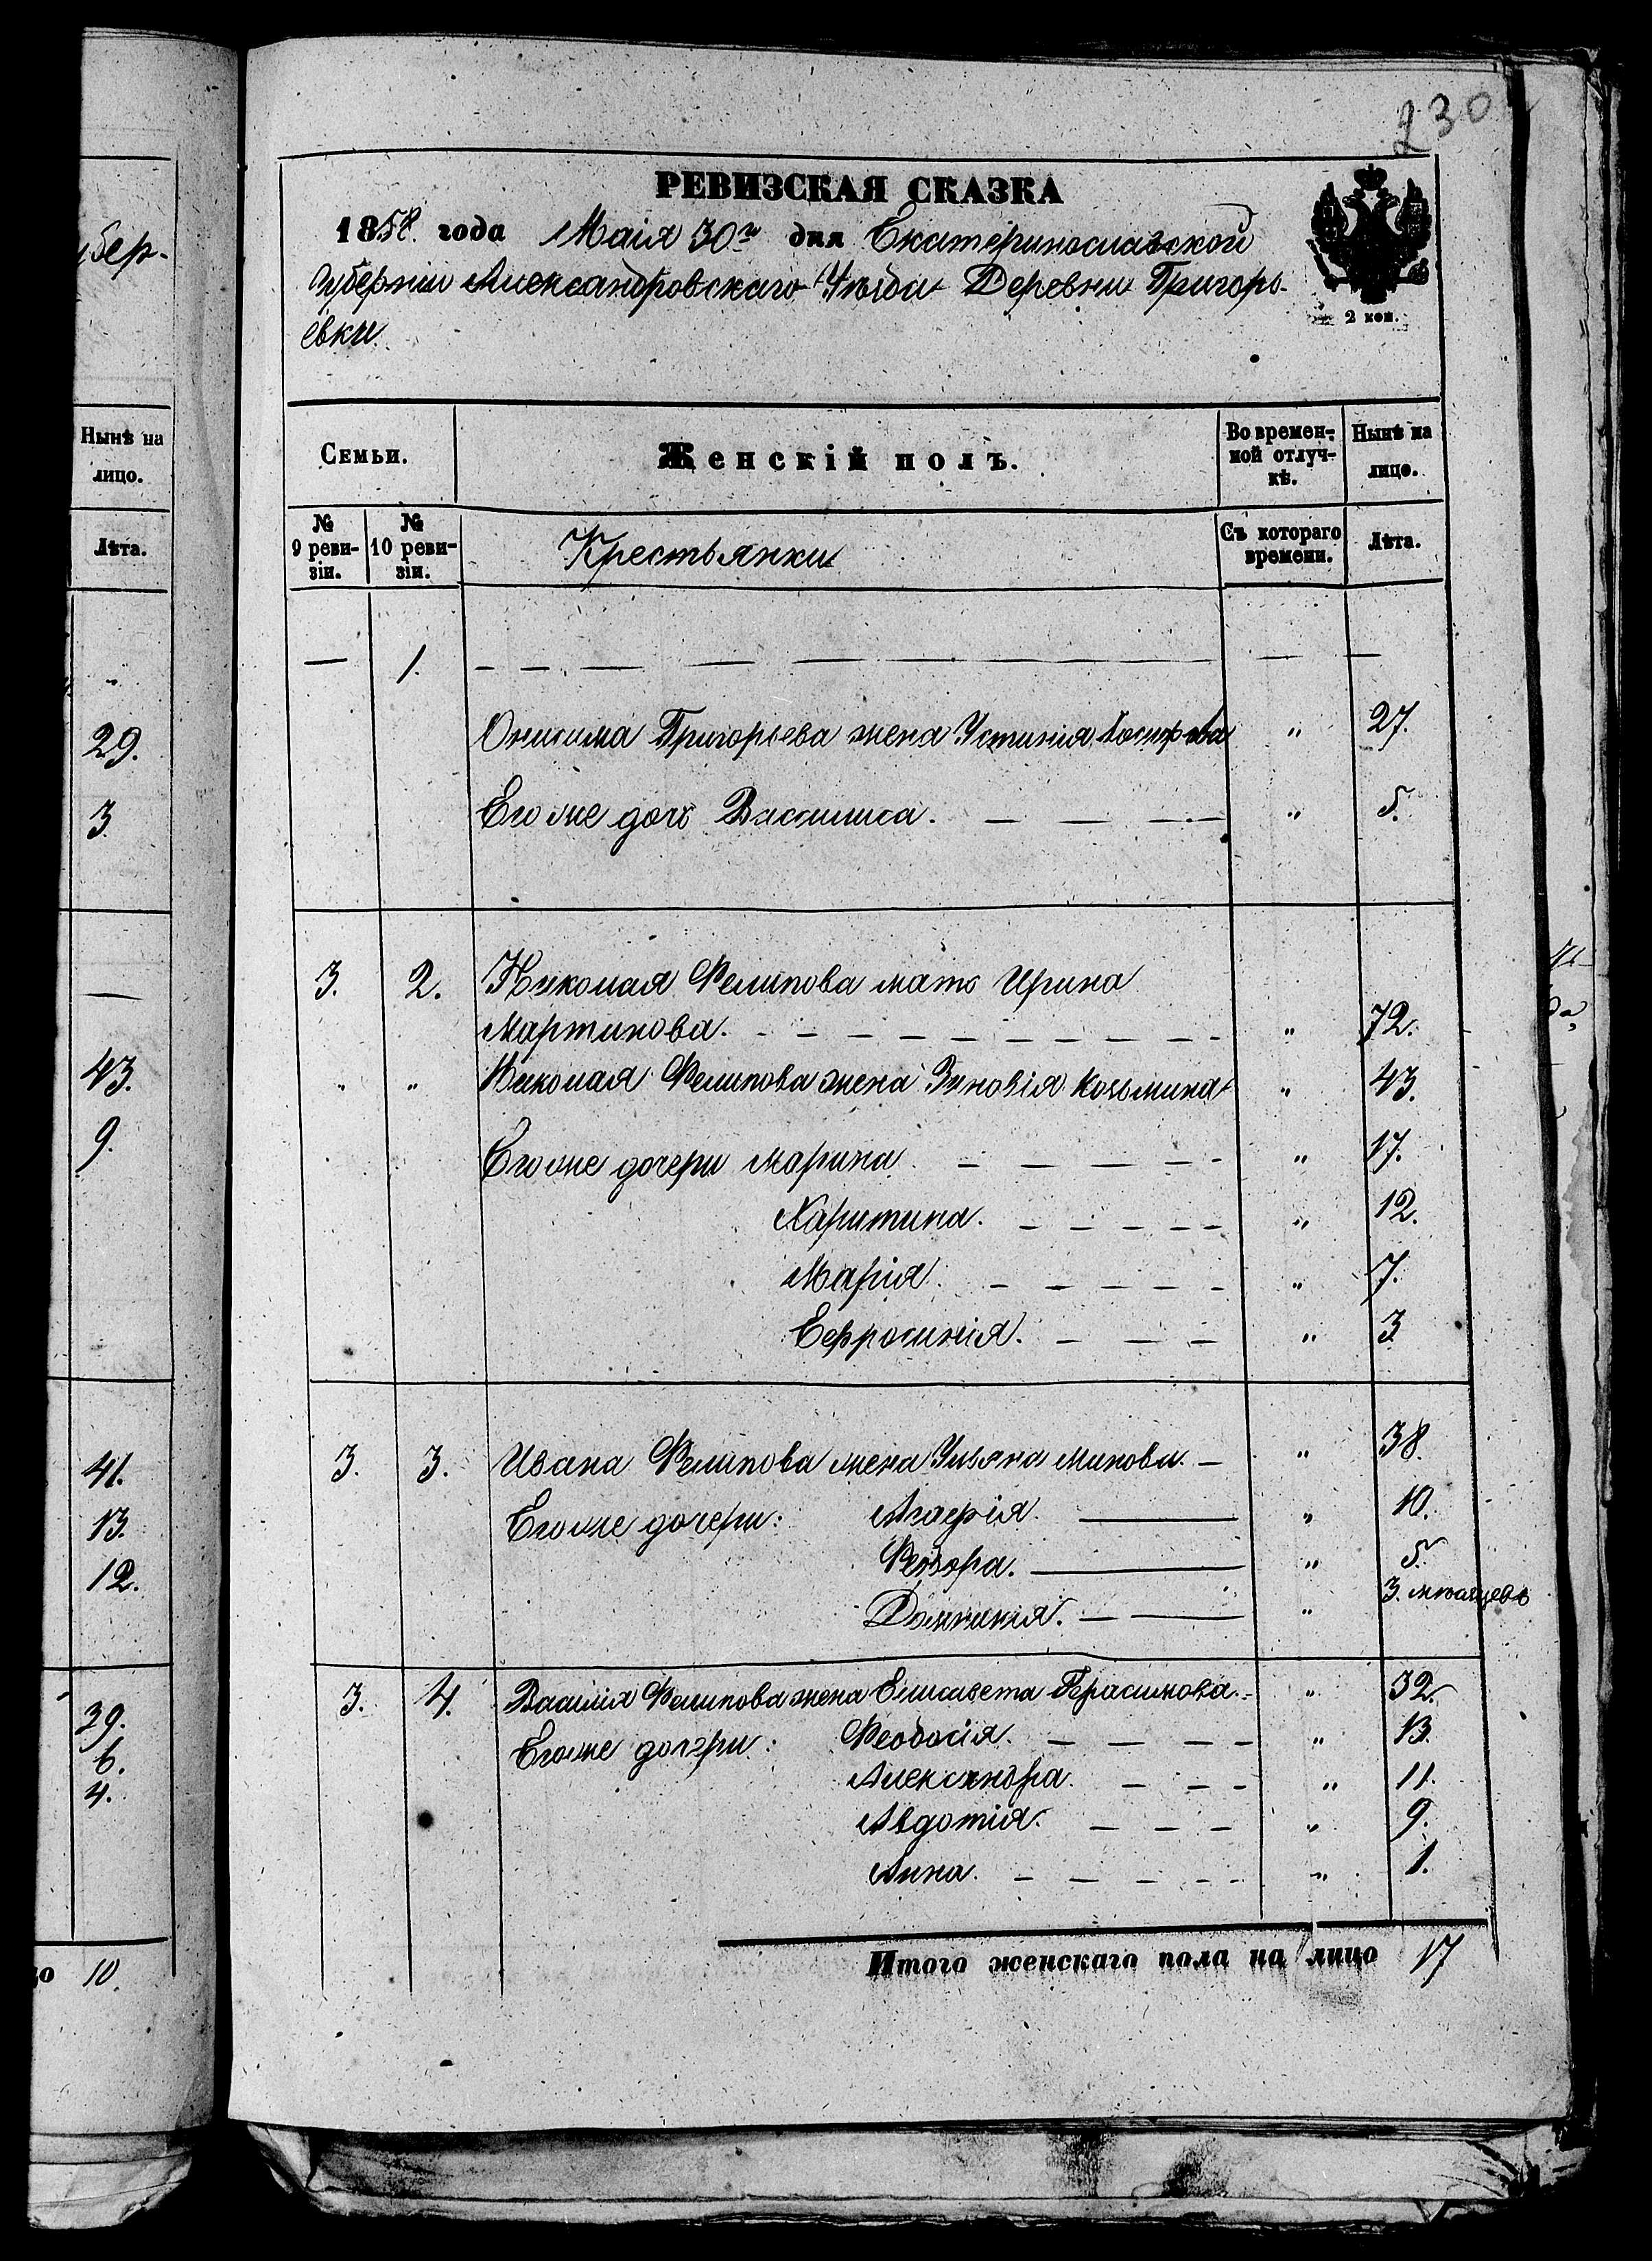 230
РЕВИЗСКАЯ СКАЗКА
1858. года Маія 30го дня Екатеринославской
Губерніи Александровскаго Уѣзда Деревни Григорь-
евки.
2 коп.
Семьи.
Женскій полъ.
Во времен-
ной отлуч-
кѣ.
Нынѣ на
лицо.
№
9 реви-
зіи.
№
10 реви-
зіи.
Крестьянки
Съ котораго
времени.
Лѣта.
— 1. — — — — — — — — —
Онисима Григорьева жена Устинія „ 27.
Его же дочь Василиса. — — — „ 5.
3. 2. Николая Фелипова мать Ирина
Мартинова. — — — — — — „ 72.
„ „ Николая Фелипова жена Зиновія Козьмина „ 43.
Его же дочери Марина — — — — „ 17.
Харитина. — — — — „ 12.
Марія. — — — — — „ 7.
Ефросинія. — — — „ 3
3. 3. Ивана Фелипова жена Ульяна Минова. — „ 38.
Его же дочери: Агафія. — „ 10.
Феодора. — „ 5.
Домникія. — — „ 3. мѣсяцевъ
3. 4. Василія Фелипова жена Елисавета Герасимова. „ 32.
Его же дочери: Феодосія. — — — — „ 13.
Александра. — — — „ 11.
Авдотія. — — — „ 9.
Анна. — — — — „ 1.
Итого женскаго пола на лицо 17
убер-
Нынѣ на
лицо.
Лѣта.
29.
3
—
43.
9.
41.
13.
12.
39.
6.
4.
10.